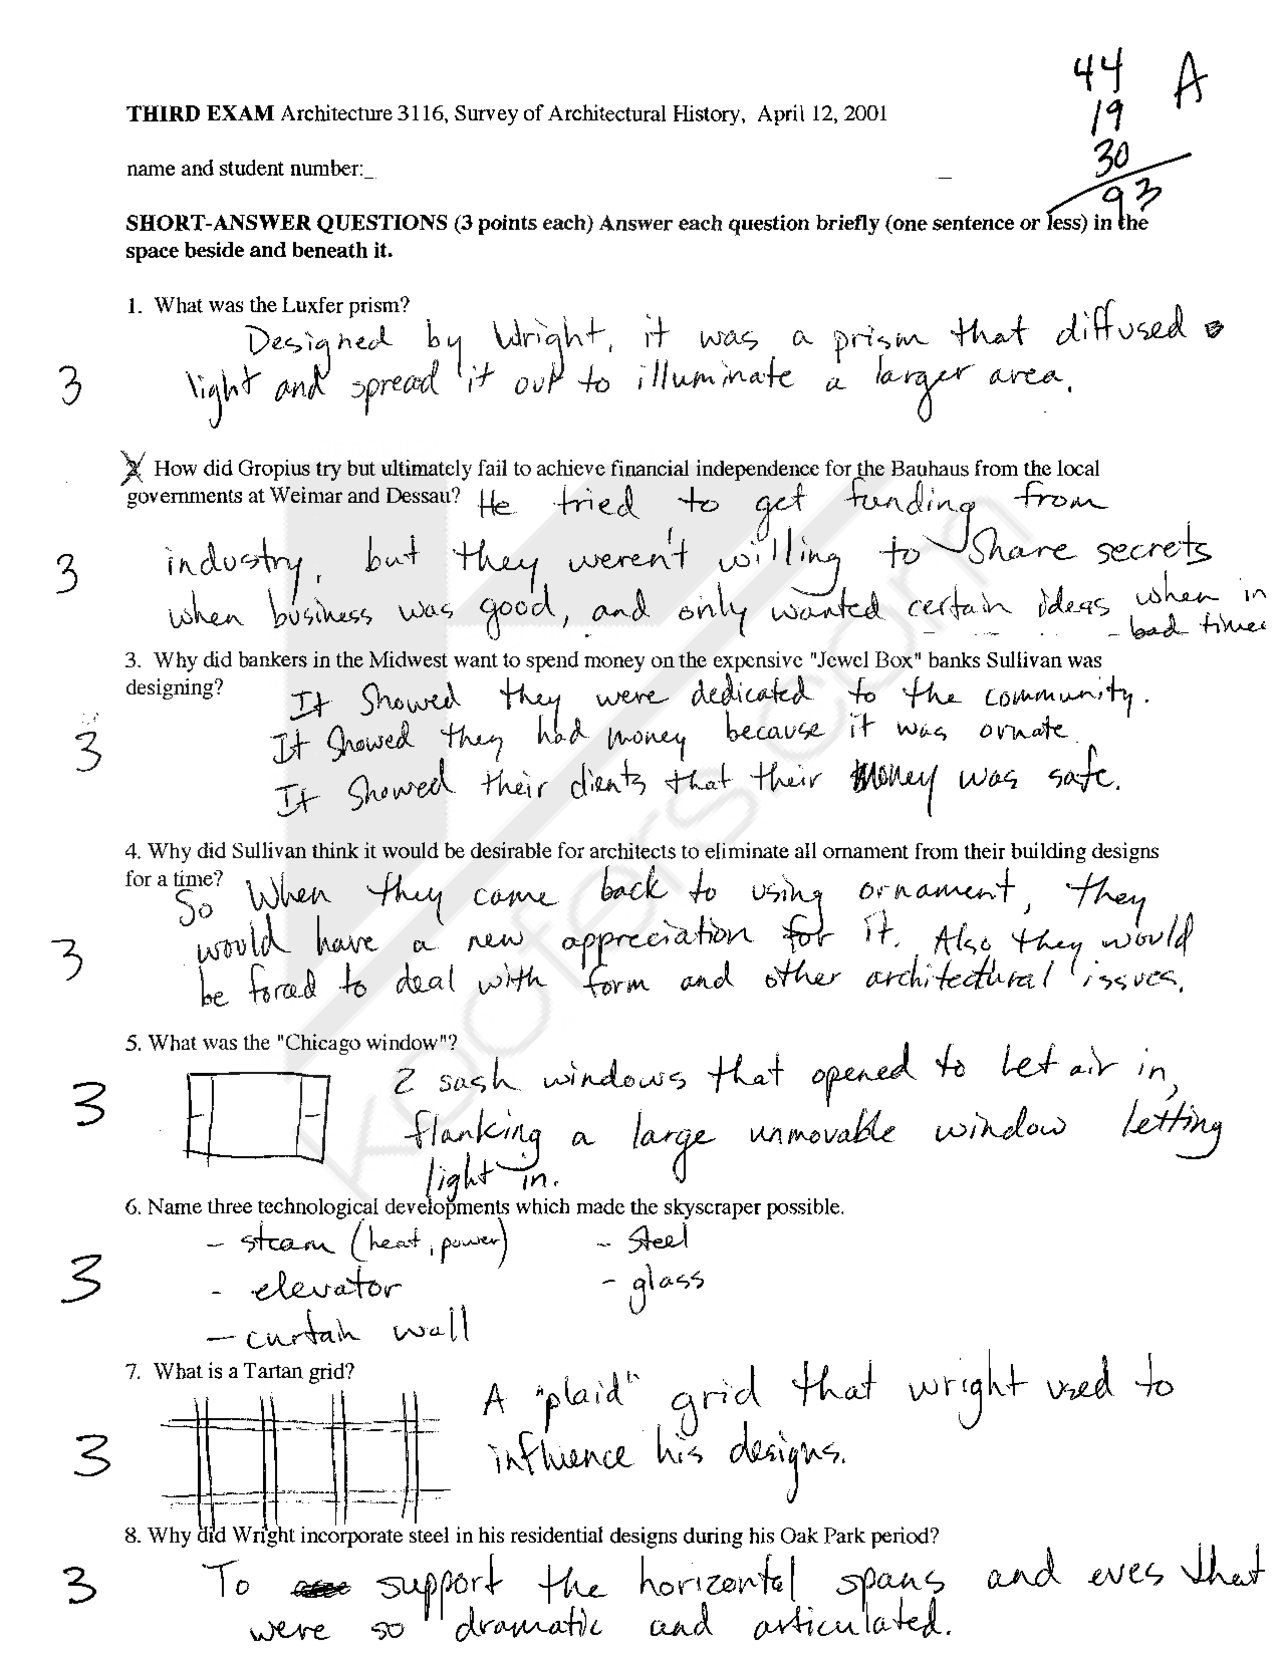 44 A
THIRD EXAM Architecture 3116, Survey of Architectural History, April 12, 2001
19
30
name and student number:_ _
93
SHORT-ANSWER QUESTIONS (3 points each) Answer each question briefly (one sentence or less) in the
space beside and beneath it.
1. What was the Luxfer prism?
Designed by Wright, it was a prism that diffused
3 light and spread it out to illuminate a larger area.
2. How did Gropius try but ultimately fail to achieve financial independence for the Bauhaus from the local
governments at Weimar and Dessau? He tried to get funding from
3 industry, but they weren't willing to share secrets
when business was good, and only wanted certain ideas when in
bad times
3. Why did bankers in the Midwest want to spend money on the expensive "Jewel Box" banks Sullivan was
designing? It showed they were dedicated to the community.
3 It showed they had money because it was ornate.
It showed their clients that their money was safe.
4. Why did Sullivan think it would be desirable for architects to eliminate all ornament from their building designs
for a time? So When they came back to using ornament, they
3 would have a new appreciation for it. Also they would
be forced to deal with form and other architectural issues.
5. What was the "Chicago window"?
3 2 sash windows that opened to let air in,
flanking a large unmovable window letting
light in.
6. Name three technological developments which made the skyscraper possible.
- steam (heat, power) - steel
3 - elevator - glass
- curtain wall
7. What is a Tartan grid?
A "plaid" grid that wright used to
3 influence his designs.
8. Why did Wright incorporate steel in his residential designs during his Oak Park period?
3 To support the horizontal spans and eves that
were so dramatic and articulated.
Kooters.com